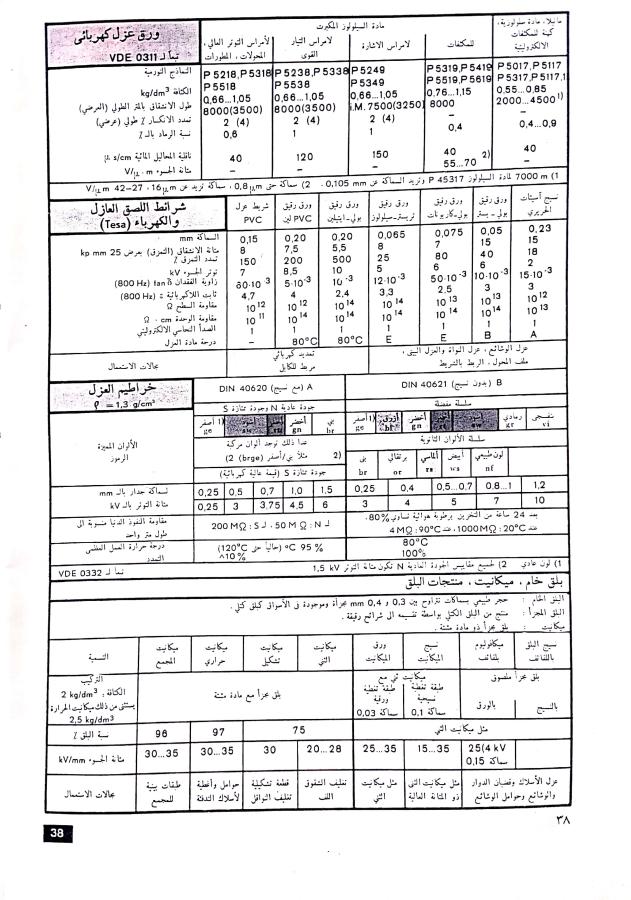 ورق عزل كهربائي
تبعاً لـ VDE 0311
مادة السيلولوز المكبرت
مانيلا، مادة سلولوزية،
كيبة للمكثفات
الالكتروليتية
للمكثفات
لامراس الاشارة
لامراس التيار القوى
لأمراس التوتر العالي،
المحولات، المطورات
النماذج النورمية P 5218, P 5318 P 5238, P 5338 P 5249 P 5319, P 5419 P 5017, P 5117
P 5518 P 5538 P 5349 P 5519, P 5619 P 5317, P 5117,1
الكثافة kg/dm³ 0,66...1,05 0,66...1,05 0,66...1,05 0,76...1,15 0,55...0,85
طول الانشقاق بالمتر الطولي (العرضي) 8000(3500) 8000(3500) i.M. 7500(3250) 8000 2000...4500 1)
تمدد الانكسار ٪ طولي (عرضي) 2 (4) 2 (4) 2 (4) – –
نسبة الرماد بالـ ٪ 0,6 1 1 0,4 0,4...0,9
ناقلية المحاليل المائية μs/cm 40 120 150 40 2) 40
متانة الجسوء V/μ·m – – – 55...70 –
1) 7000 m لمادة السيلولوز P 45317 وتزيد السماكة عن 0,105 mm. 2) سماكة حتى 0,8μm، سماكة تزيد عن 16μm، 27–42 V/μm
شرائط اللصق العازل
والكهرباء (Tesa)
شريط عزل PVC
ورق رقيق PVC لين
ورق رقيق بولي-ايتيلين
ورق رقيق تريستر-سيلولوز
ورق رقيق بولي-كاربونات
ورق رقيق بولي-يستر
نسيج أسيتات الحريري
السماكة mm 0,15 0,20 0,20 0,065 0,075 0,05 0,23
متانة الانشقاق (التمزق) بعرض 25 mm kp 8 7,5 5,5 8 7 15 15
تمدد التمزق ٪ 150 200 500 25 80 40 18
توتر الجسوء kV 7 8,5 10 5 6 6 2
زاوية الفقدان tan δ (800 Hz) 60·10⁻³ 5·10⁻³ 10⁻³ 12·10⁻³ 50·10⁻³ 10·10⁻³ 15·10⁻³
ثابت اللاكهربائية (800 Hz) 4,7 4 2,4 3,3 2,5 3 3
مقاومة السطح Ω 10¹² 10¹⁴ 10¹⁴ 10¹⁴ 10¹³ 10¹⁴ 10¹²
مقاومة الوحدة Ω · cm 10¹¹ 10¹⁴ 10¹⁴ 10¹⁴ 10¹³ 10¹⁴ 10¹³
الصدأ النحاسي الالكتروليتي 1 1 1 1 1 1 1
درجة مادة العزل – 80°C 80°C E E B A
مجالات الاستعمال
تمديد كهربائي
مربط للكابل
عزل الوشائع، عزل النواة والعزل البيني،
ملف المحول، الربط بالشريط
خراطيم العزل
ϱ = 1,3 g/cm³
A (مع نسيج) DIN 40620
B (بدون نسيج) DIN 40621
جودة عادية N وجودة ممتازة S
سلسلة مفضلة
الألوان المميزة
الرموز
1) أصفر ge
أخضر gn
بني br
1) أصفر ge
أزرق bl
أخضر gn
رمادي gr
بنفسجي vi
عدا ذلك توجد ألوان مركبة
مثلاً بني/أصفر (brge) 2)
جودة ممتازة S (قيمة عالية كهربائية)
2)
سلسلة الألوان الثانوية
بني br
برتقالي or
ألماسي ra
أبيض ws
لون طبيعي nf
لسماكة جدار بالـ mm 0,25 0,5 0,7 1,0 1,5 0,25 0,4 0,5...0,7 0,8...1 1,2
متانة التوتر بالـ kV 0,25 3 3,75 4,5 6 3 4 5 7 10
مقاومة النفوذ الدنيا منسوبة الى
طول متر واحد
لـ N: 50 MΩ، لـ S: 200 MΩ
بعد 24 ساعة من التخزين برطوبة هوائية تساوي 80%.
عند 20°C: 1000MΩ، عند 90°C: 4 MΩ
درجة حرارة العمل العظمى 95 °C (حالياً حتى 120°C) 80°C
التمدد ≥10 % 100%
1) لون عادي 2) لجميع مقاييس الجودة العادية N تكون متانة التوتر 1,5 kV تبعاً لـ VDE 0332
بلق خام، ميكانيت، منتجات البلق
البلق الخام : حجر طبيعي بسماكات تتراوح بين 0,3 و 0,4 mm مجزأة وموجودة في الأسواق كبلق كتلي.
البلق المجزأ : منتج من البلق الكتلي بواسطة تقسيمه الى شرائح رقيقة.
ميكانيت : بلق مجزأ ذو مادة مثبتة.
التسمية
ميكانيت المجمع
ميكانيت حراري
ميكانيت تشكيل
ميكانيت الثني
ورق الميكانيت
نسيج الميكانيت
ميكافوليوم بلفائف
نسيج البلق باللفائف
التركيب
الكثافة: 2 kg/dm³
يستثنى من ذلك ميكانيت الحرارة
2,5 kg/dm³
بلق مجزأ مع مادة مثبتة
ميكانيت ثني مع
طبقة تغطية ورقية
سماكة 0,03
طبقة تغطية نسيجية
سماكة 0,1
بلق مجزأ ملصوق
بالورق
بالنسيج
نسبة البلق ٪ 96 97 75 مثل ميكانيت الثني
متانة الجسوء kV/mm 30...35 30...35 30 20...28 25...35 15...35 25(4 kV
سماكة 0,15
مجالات الاستعمال
طبقات بينية للمجمع
حوامل وأغطية لأسلاك التدفئة
قطعة تشكيلية تغليف النوافل
تغليف الشقوق اللف
مثل ميكانيت الثني
مثل ميكانيت الثني ذو المتانة العالية
عزل الأسلاك وقضبان الدوار
والوشائع وحوامل الوشائع
38
٣٨